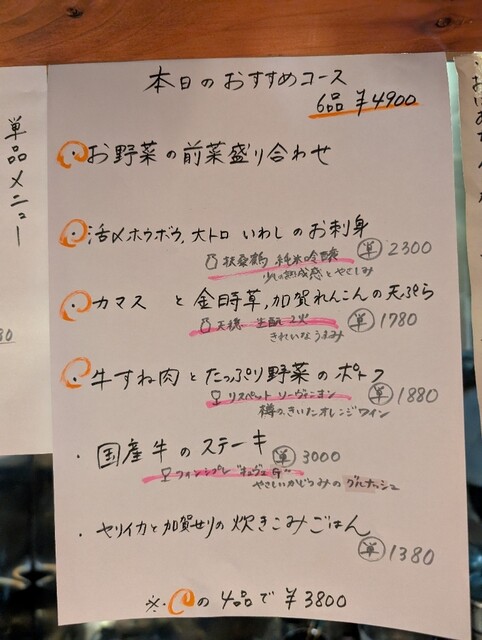 本日のおすすめコース
6品 ¥4900
お野菜の前菜盛り合わせ
活〆ホウボウ、大トロ いわしのお刺身
扶桑鶴 純米吟醸 単 2300
少しの熟成感とやさしみ
カマス と 金時草、加賀れんこんの天ぷら
天穏 生酛 火 単 1780
きれいなうまみ
牛すね肉とたっぷり野菜のポトフ
リスペット ソーヴィニオン 単 1880
樽の、きいたオレンジワイン
・国産牛のステーキ 単 3000
ワインシプレ
やさしいかじつみの グルナッシュ
・ヤリイカと加賀せりの炊きこみごはん
単 1380
※の4品で ¥3800
単品メニュー